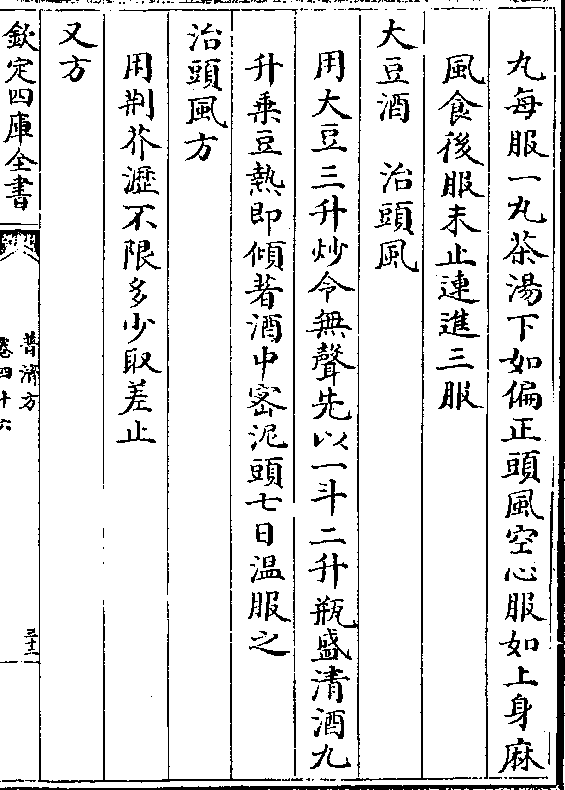 丸每服一丸茶湯下如偏正頭風空心服如上身麻
風食後服未止連進三服
大豆酒　治頭風
用大豆三升炒令無聲先以一斗二升瓶盛清酒九
升乗豆熱即傾著酒中宻泥頭七日温服之
治頭風方
用荆芥瀝不限多少取差止
又方
欽定四庫全書
普濟方
卷四十六
三十二